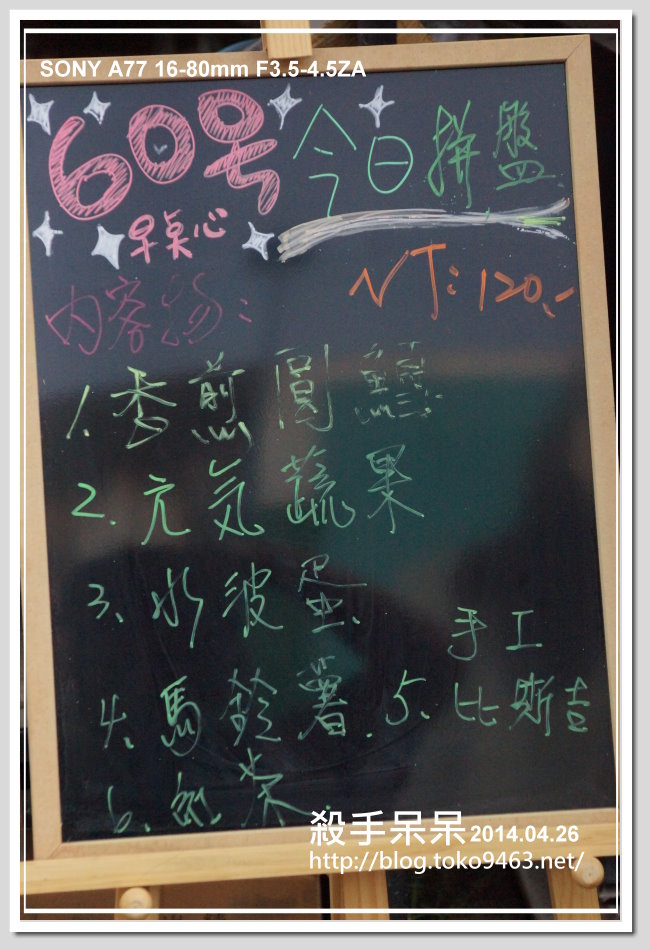 SONY A77 16-80mm F3.5-4.5ZA
60号 今日拼盤
早桌心
NT: 120.-
内容物:
1. 香煎圓鱈
2. 元気蔬果
3. 水波蛋
手工
4. 馬鈴薯. 5. 比斯吉
6.
殺手呆呆 2014.04.26
http://blog.toko9463.net/